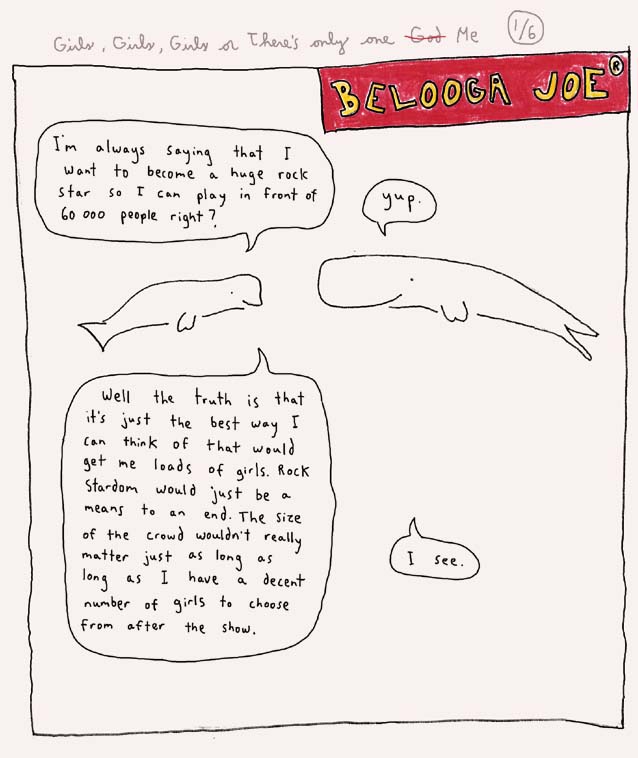 Girls, Girls, Girls or There's only one God Me 1/6
BELOOGA JOE®
I'm always saying that I
want to become a huge rock
star so I can play in front of
60 000 people right?
yup.
Well the truth is that
it's just the best way I
can think of that would
get me loads of girls. Rock
Stardom would just be a
means to an end. The size
of the crowd wouldn't really
matter just as long as
long as I have a decent
number of girls to choose
from after the show.
I see.